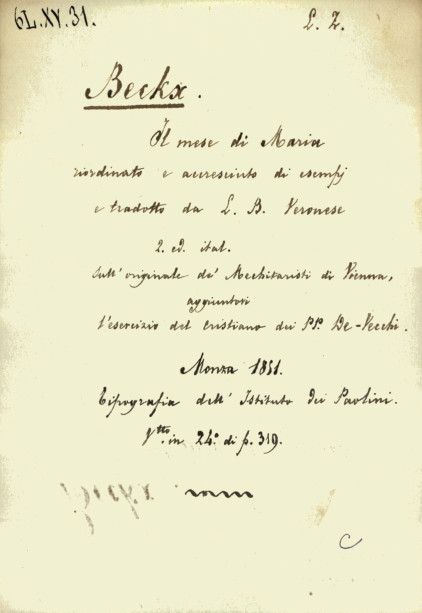 6L.XV.31.
L. Z.
Beckx.
Il mese di Maria
riordinato e accresciuto di esempj
e tradotto da L. B. Veronese
2. ed. ital.
sull' originale de' Mechitaristi di Vienna,
aggiuntovi
l'esercizio del cristiano dei PP. De-Vecchi.
Monza 1851.
Tipografia dell' Istituto dei Paolini.
Vtto. in 24.o di p. 319.
Beckx
C